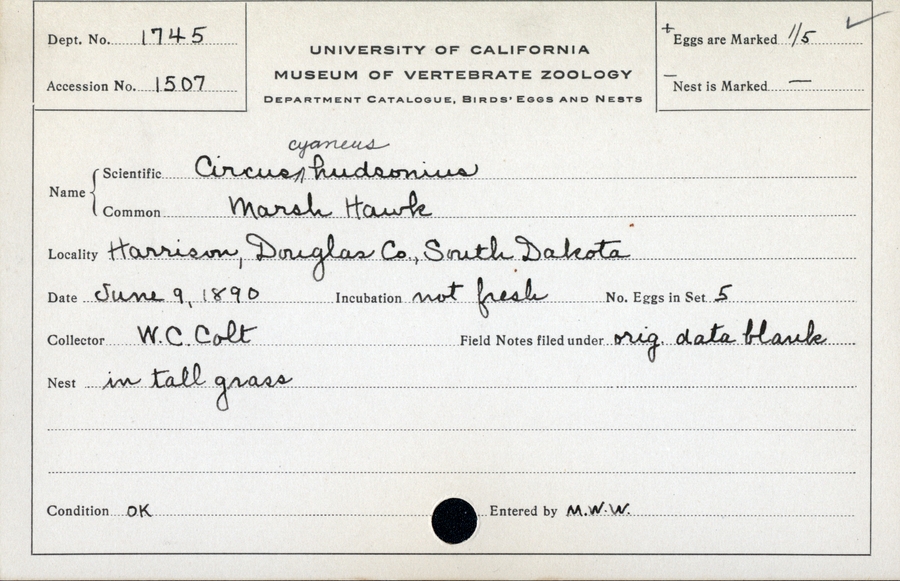 Dept. No. 1745
Accession No. 1507
UNIVERSITY OF CALIFORNIA
MUSEUM OF VERTEBRATE ZOOLOGY
DEPARTMENT CATALOGUE, BIRDS' EGGS AND NESTS
+ Eggs are Marked 1/5 ✓
— Nest is Marked —
cyaneus
Name { Scientific Circus hudsonius
Common Marsh Hawk
Locality Harrison, Douglas Co., South Dakota
Date June 9, 1890 Incubation not fresh No. Eggs in Set 5
Collector W.C. Colt Field Notes filed under orig. data blank
Nest in tall grass
Condition OK Entered by M.W.W.